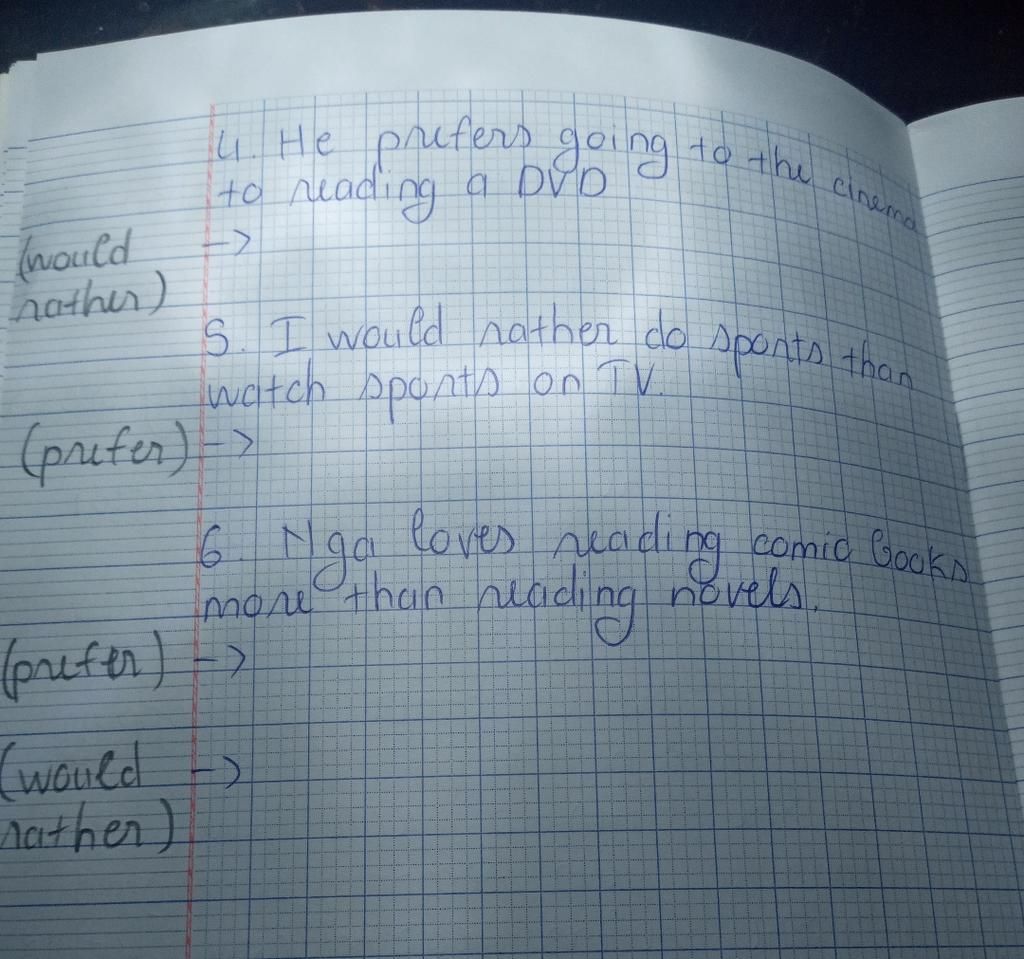 4. He prefers going to the cinema
to reading a DVD
(would →
rather)
5. I would rather do sports than
watch sports on TV.
(prefer) →
6. Nga loves reading comic books
more than reading novels.
(prefer) →
(would →
rather)